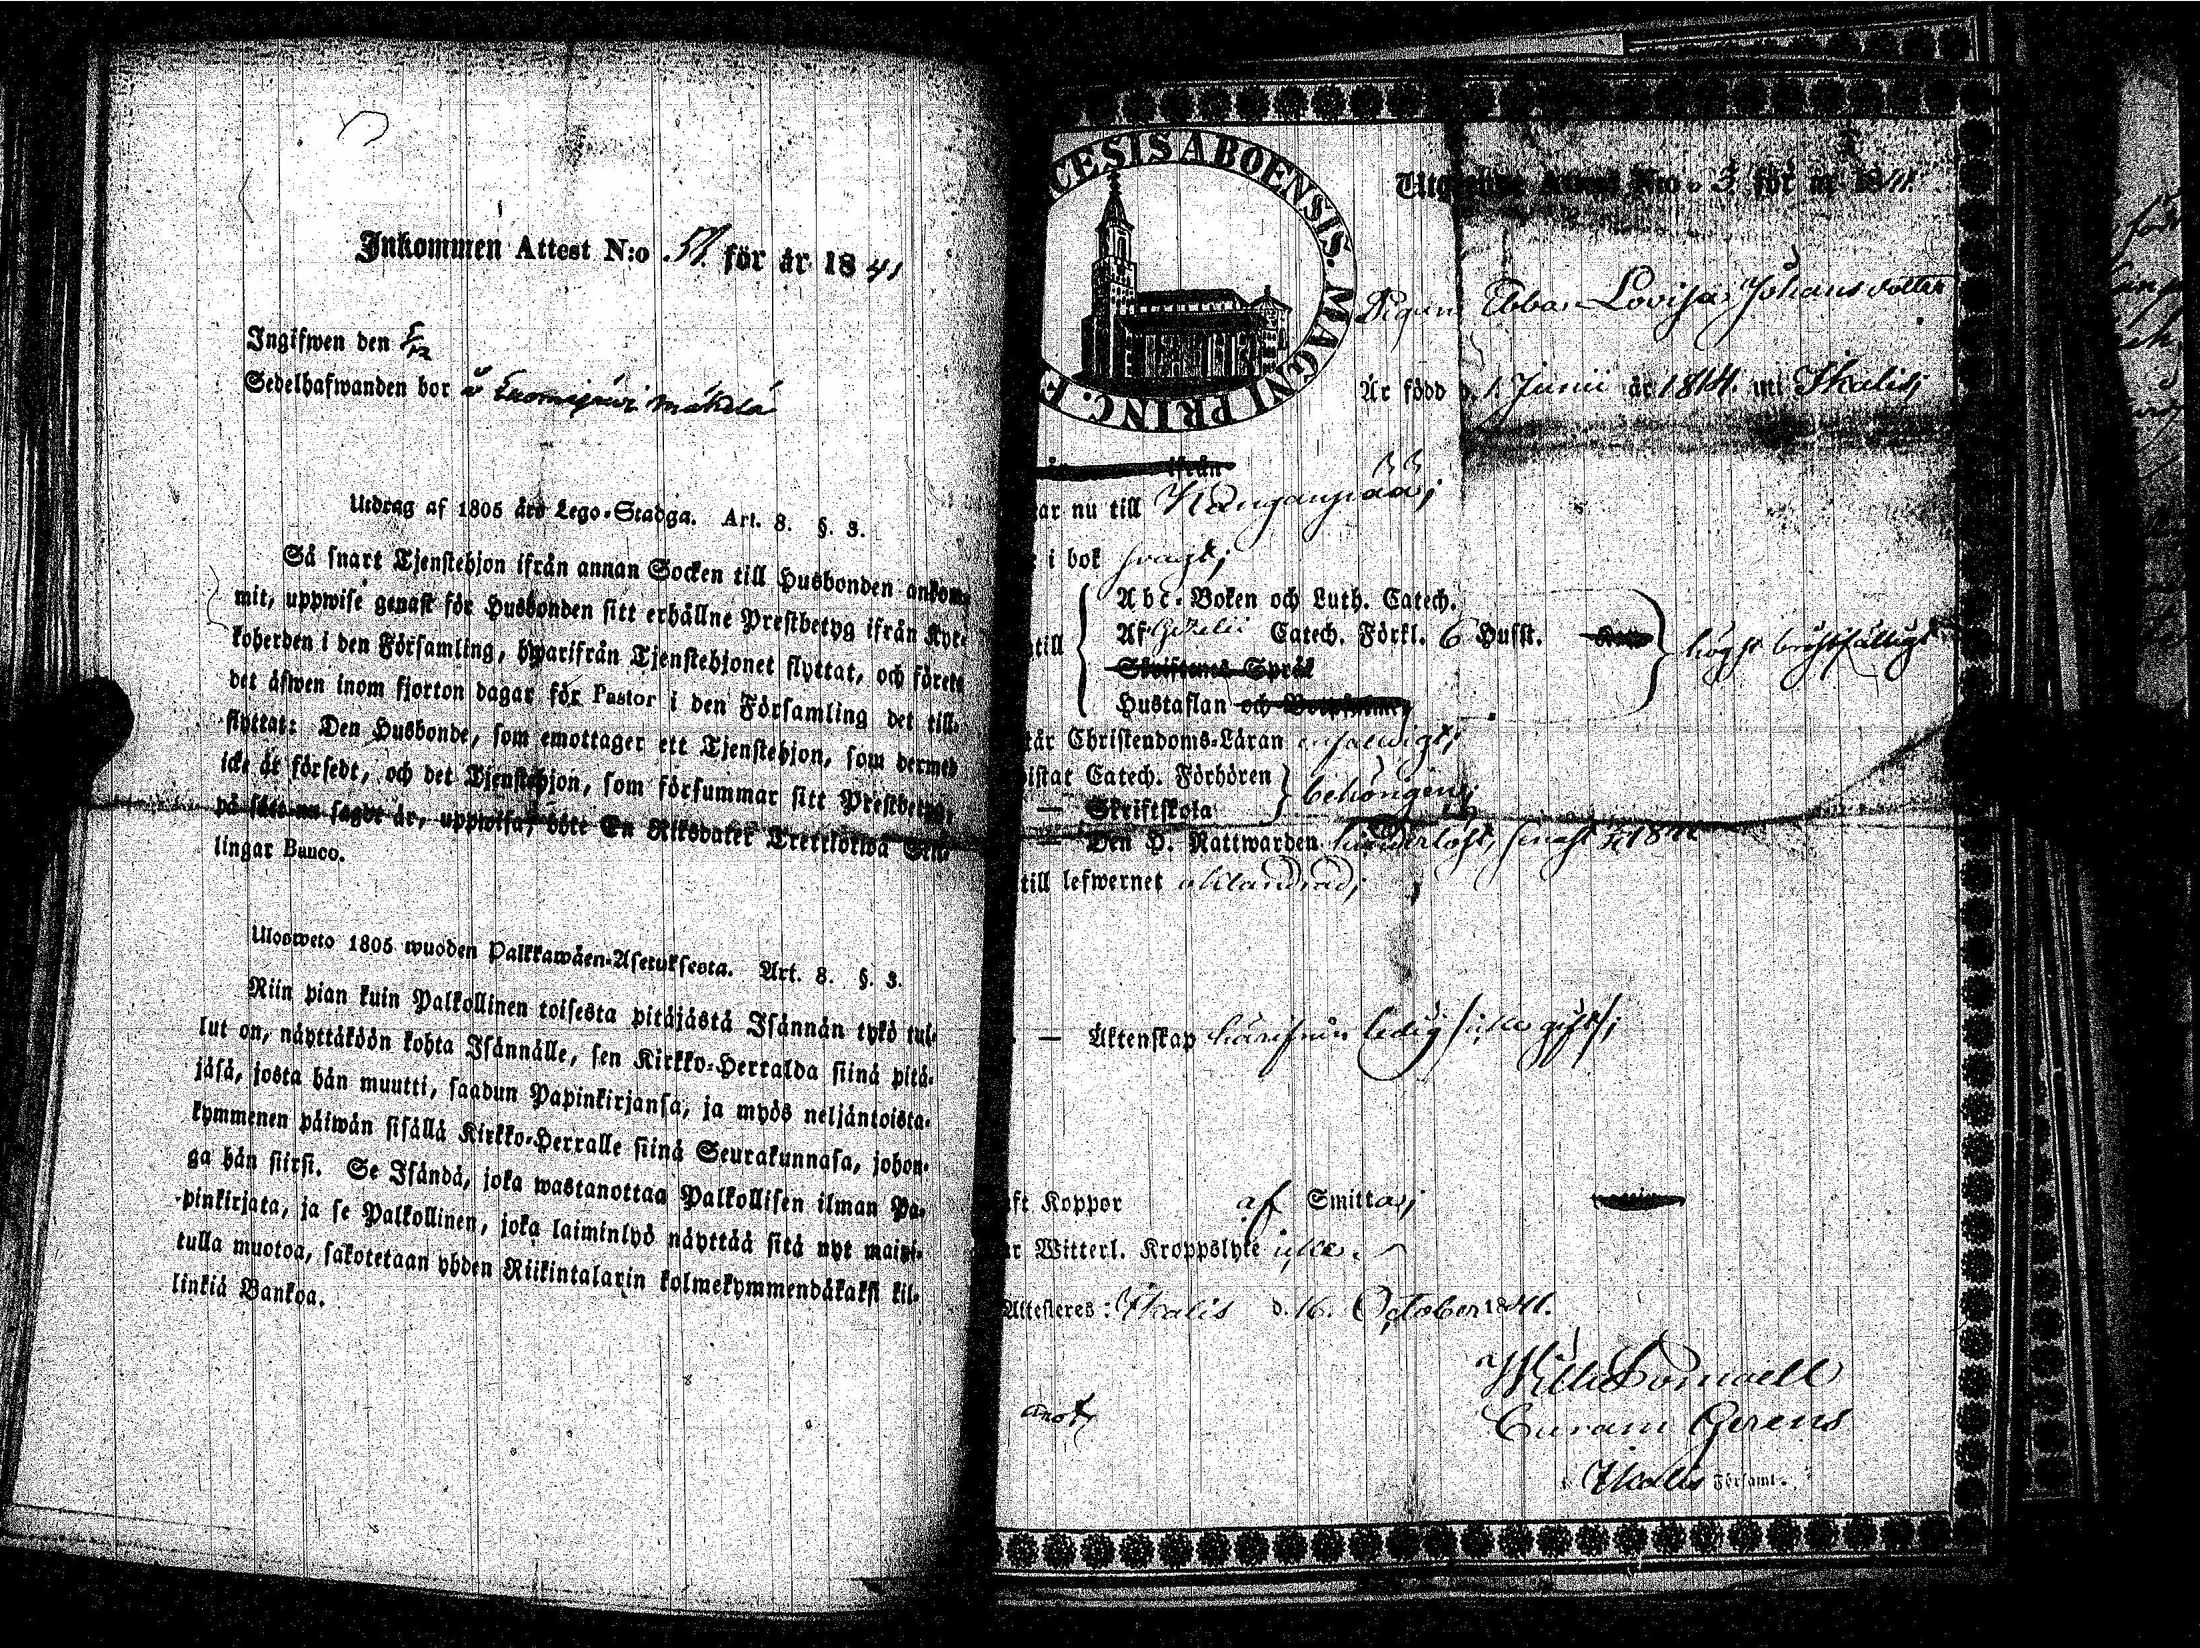 Inkommen Attest N:o 51. för år 1841
Ingifwen den 5/12
Sedelhafwanden bor å
Utdrag af 1805 års Lego-Stadga. Art. 8. §. 3.
Så snart Tjenstehjon ifrån annan Socken till Husbonden ankom-
mit, uppwise genast för Husbonden sitt erhållne Prestbetyg ifrån Kyr-
koherden i den Församling, hwarifrån Tjenstehjonet flyttat, och förete
det äfwen inom fjorton dagar för Pastor i den Församling det till-
flyttat: Den Husbonde, som emottager ett Tjenstehjon, som dermed
icke är försedt, och det Tjenstehjon, som försummar sitt Prestbetyg,
på sätt nu sagdt är, uppwisa, böte En Riksdaler Trettiotwå Skil-
lingar Banco.
Ulosweto 1805 wuoden Palkkawäen-Asetuksesta. Art. 8. §. 3.
Niin pian kuin Palkollinen toisesta pitäjästä Isännän tykö tul-
lut on, näyttäköön kohta Isännälle, sen Kirkko-Herralda siinä pitä-
jäsä, josta hän muutti, saadun Papinkirjansa, ja myös neljäntoista-
kymmenen päiwän sisällä Kirkko-Herralle siinä Seurakunnasa, johon-
ga hän siirsi. Se Isändä, joka wastanottaa Palkollisen ilman Pa-
pinkirjata, ja se Palkollinen, joka laiminlyö näyttää sitä nyt maini-
tulla muotoa, sakotetaan yhden Riikintalarin kolmekymmendäkaksi kil-
linkiä Bankoa.
CESIS ABOENSIS. MAGNI PRINC. F
Utgifwne Attest N:o 3. för år 1841.
Pigan Ebba Lovisa Johansdotter
Är född d. 1 Junii år 1814. uti Ikalis;
ifrån
ar nu till Kanganpää;
i bok svagt;
Abc-Boken och Luth. Catech.
till Af Gezelii Catech. Förkl. 6 Hufst. högst bristfälligt
Skriftenes Språk
Hustaflan och
tår Christendoms-Läran enfaldigt;
istat Catech. Förhören behörigen;
— Skriftskola
— Den H. Nattwarden senast 1841
till lefwernet oklandrad;
— Äktenskap härifrån ledig icke gift;
ft Koppor af Smitta;
r Witterl. Kroppslyte icke.
Attesteres: Ikalis d. 16. October 1841.
Curam Gerens
i Ikalis Församl.